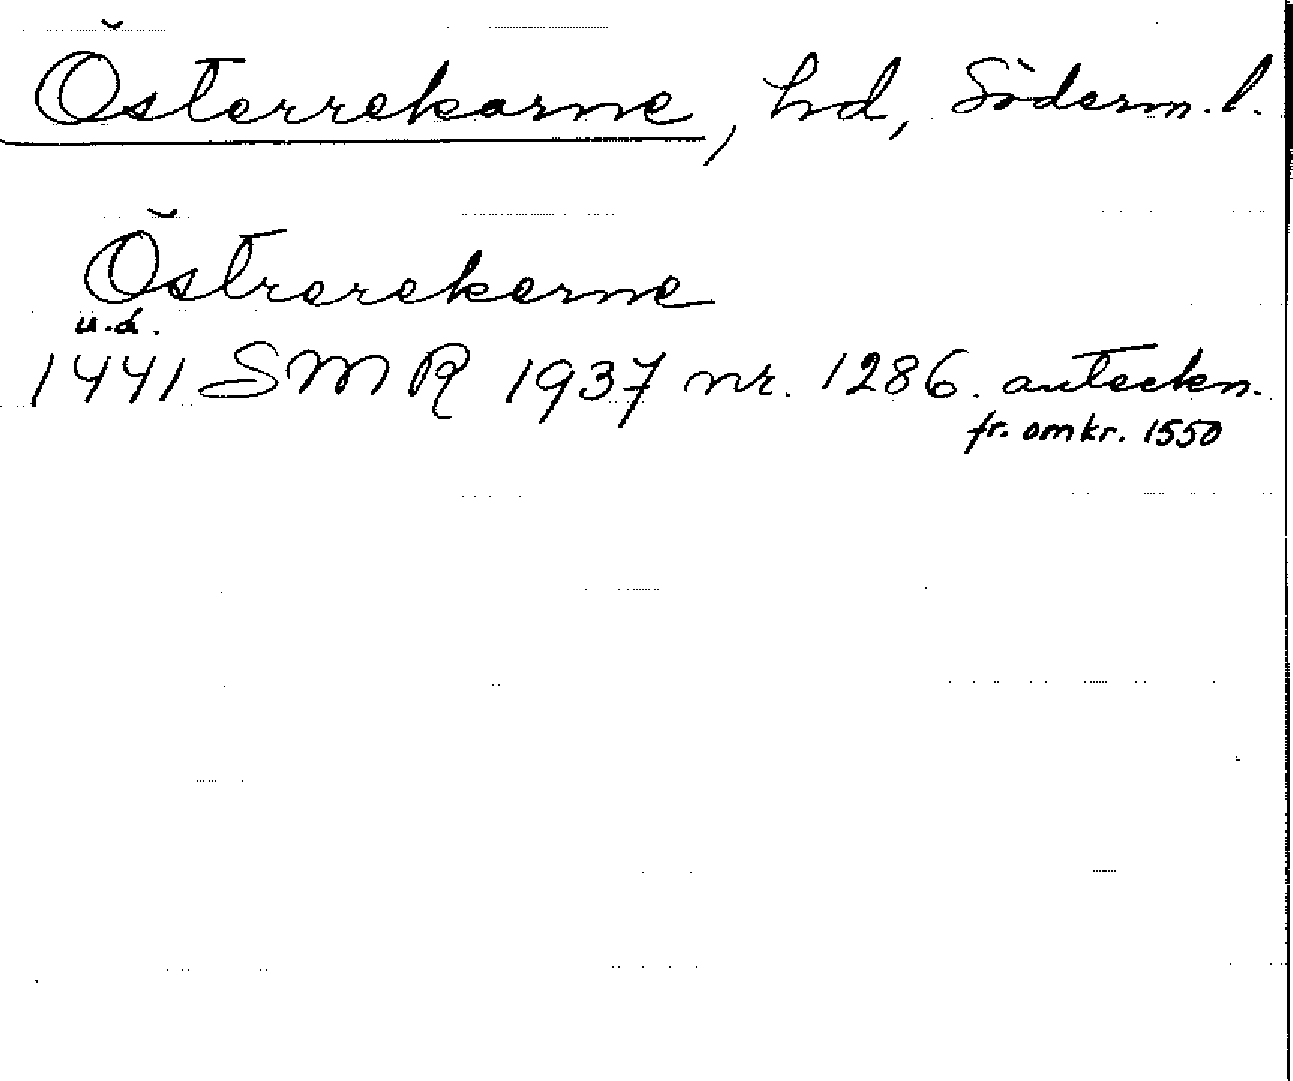 Österrekarne, hd, Söderm. l.
Östrerekerne
u.d.
1441 SMR 1937 nr. 1286. anteckn.
fr. omkr. 1550